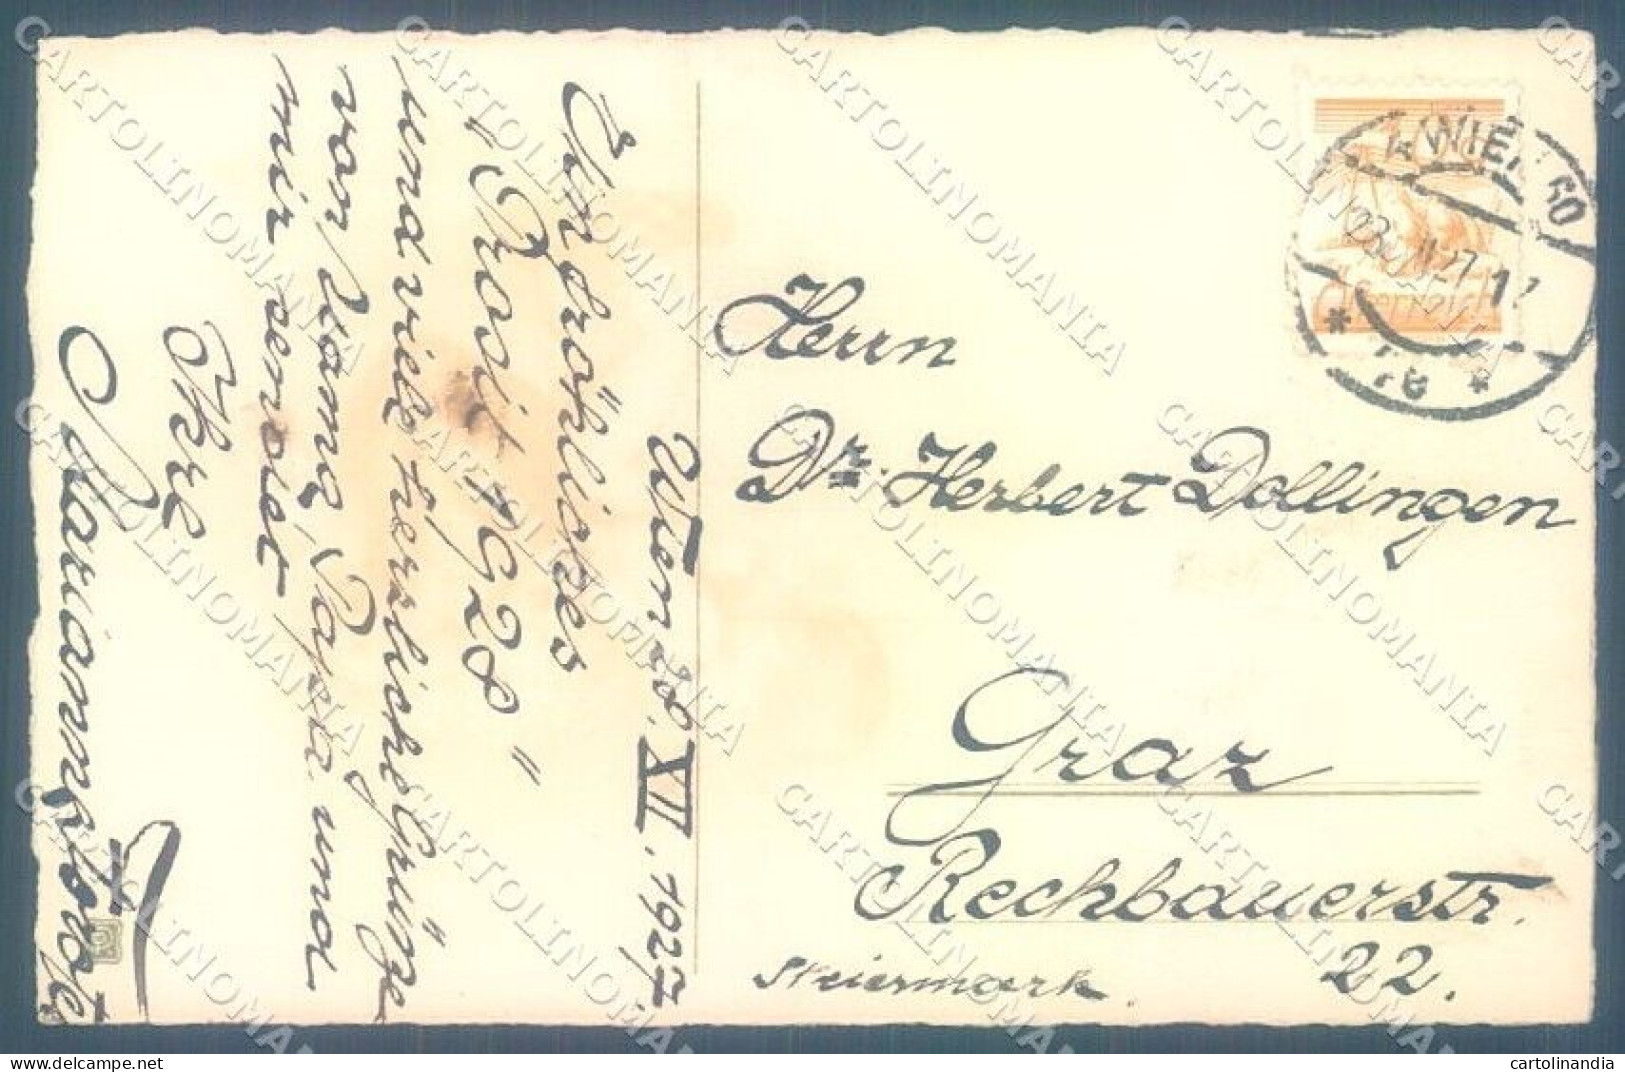 Wien, 28. XII. 1927.
Ein fröhliches
"Prosit 1928"
und viele herzliche Grüße
von Mama, Papa und
mir sendet
Ihre
Herrn
Dr. Herbert Dollinger
Graz
Rechbauerstr.
22.
Steiermark.
WIEN 60
Österreich
CARTOLINOMANIA
delcampe.net
cartolinandia